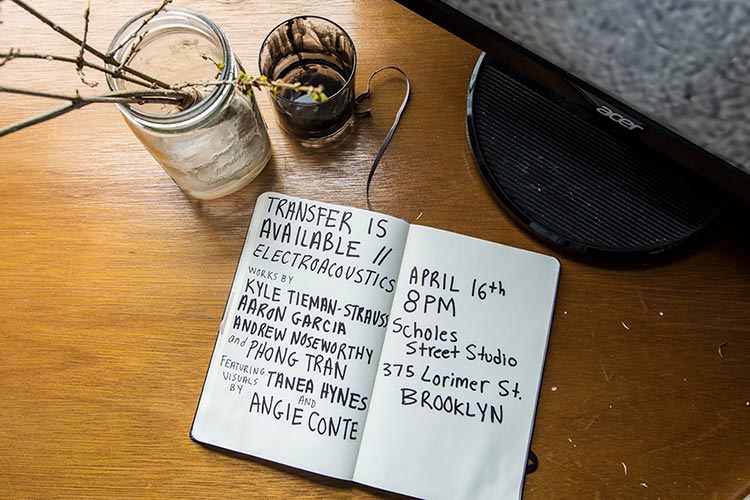 acer
TRANSFER IS
AVAILABLE //
ELECTROACOUSTICS
WORKS BY
KYLE TIEMAN-STRAUSS
AARON GARCIA
ANDREW NOSEWORTHY
and PHONG TRAN
FEATURING
VISUALS
BY
TANEA HYNES
AND
ANGIE CONTE
APRIL 16th
8PM
Scholes
Street Studio
375 Lorimer St.
BROOKLYN